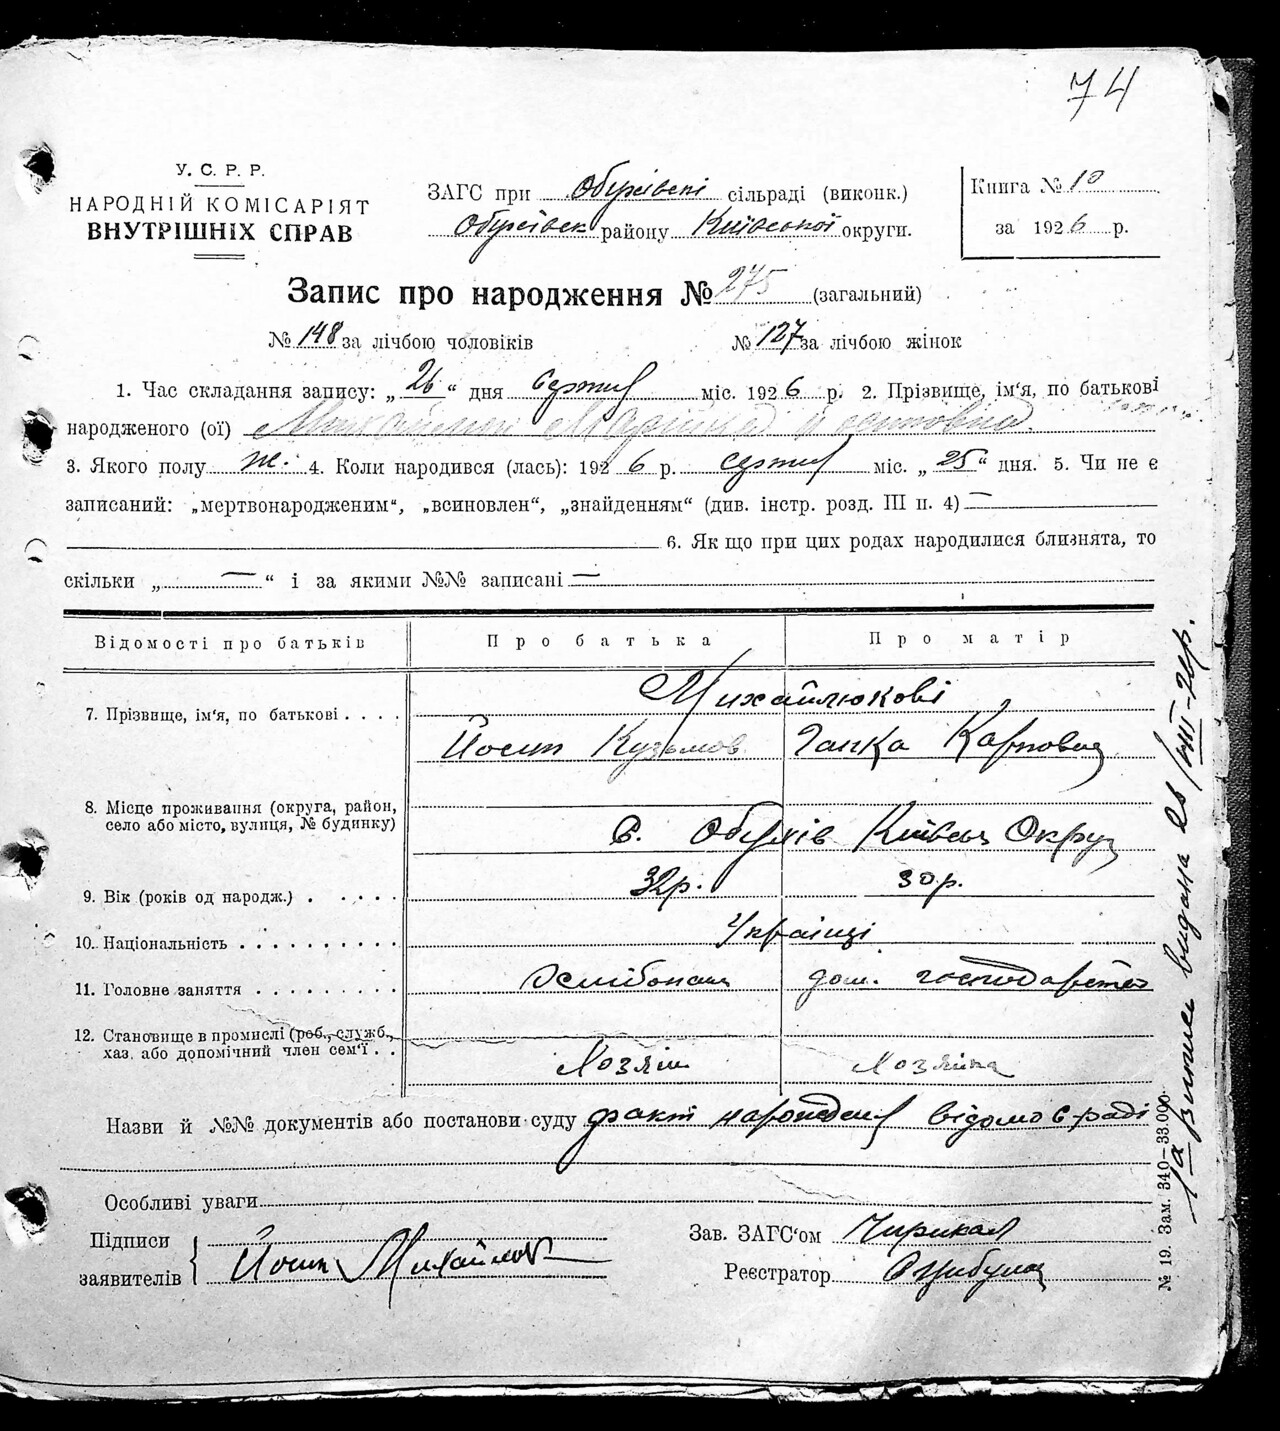 74
У. С. Р. Р.
НАРОДНІЙ КОМІСАРІЯТ
ВНУТРІШНІХ СПРАВ
ЗАГС при Обухівскі сільраді (виконк.)
Обухівськ району Київської округи.
Книга № 10
за 1926 р.
Запис про народження № 275 (загальний)
№ 148 за лічбою чоловіків № 127 за лічбою жінок
1. Час складання запису: „26“ дня Серпня міс. 1926 р. 2. Прізвище, ім‘я, по батькові
народженого (ої)
3. Якого полу ж. 4. Коли народився (лась): 1926 р. серпня міс. „25“ дня. 5. Чи не є
записаний: „мертвонародженим“, „всиновлен“, „знайденням“ (див. інстр. розд. III п. 4) —
6. Як що при цих родах народилися близнята, то
скільки „ — “ і за якими №№ записані —
Відомості про батьків Про батька Про матір
Михайлюкові
7. Прізвище, ім‘я, по батькові . . . . Йосип Кузьмов Ганка Карповна
8. Місце проживання (округа, район,
село або місто, вулиця, № будинку) С. Обухів Київськ Округ
9. Вік (років од народж.) . . . . . 32р. 30р.
10. Національність . . . . . . . . . . Українці
11. Головне заняття . . . . . . . . . дом. господарство
12. Становище в промислі (роб., служб.,
хаз. або допомічний член сем‘ї . . Хозяін Хозяіка
Назви й №№ документів або постанови суду факт народження відомо с-раді
Особливі уваги
Підписи
заявителів Йосип Михайлюк
Зав. ЗАГС‘ом
Реєстратор
№ 19. Зам. 340—33.000.
виписъ видана 26/VIII-26р.